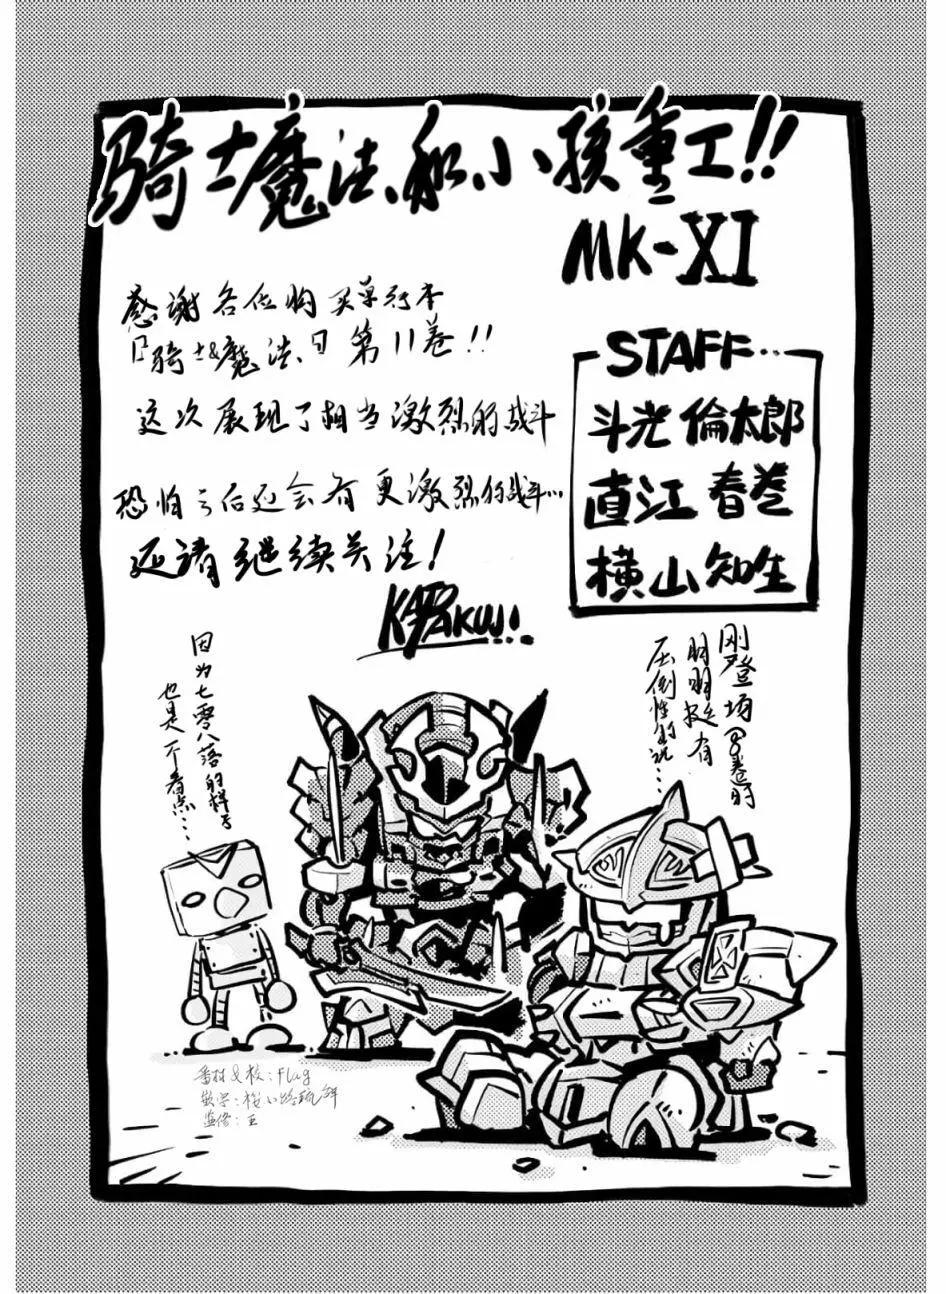 骑士魔法和小孩重工!!
MK-XI
感谢各位购买单行本
『骑士&魔法』第11卷!!
这次展现了相当激烈的战斗
恐怕之后还会有更激烈的战斗…
还请继续关注!
KATAKUJi…
STAFF…
斗光 倫太郎
直江 春巻
横山 知生
刚登场8卷时
明明挺有
压倒性的说…
因为七零八落的样子
也是一个看点…
Flug
监修:王